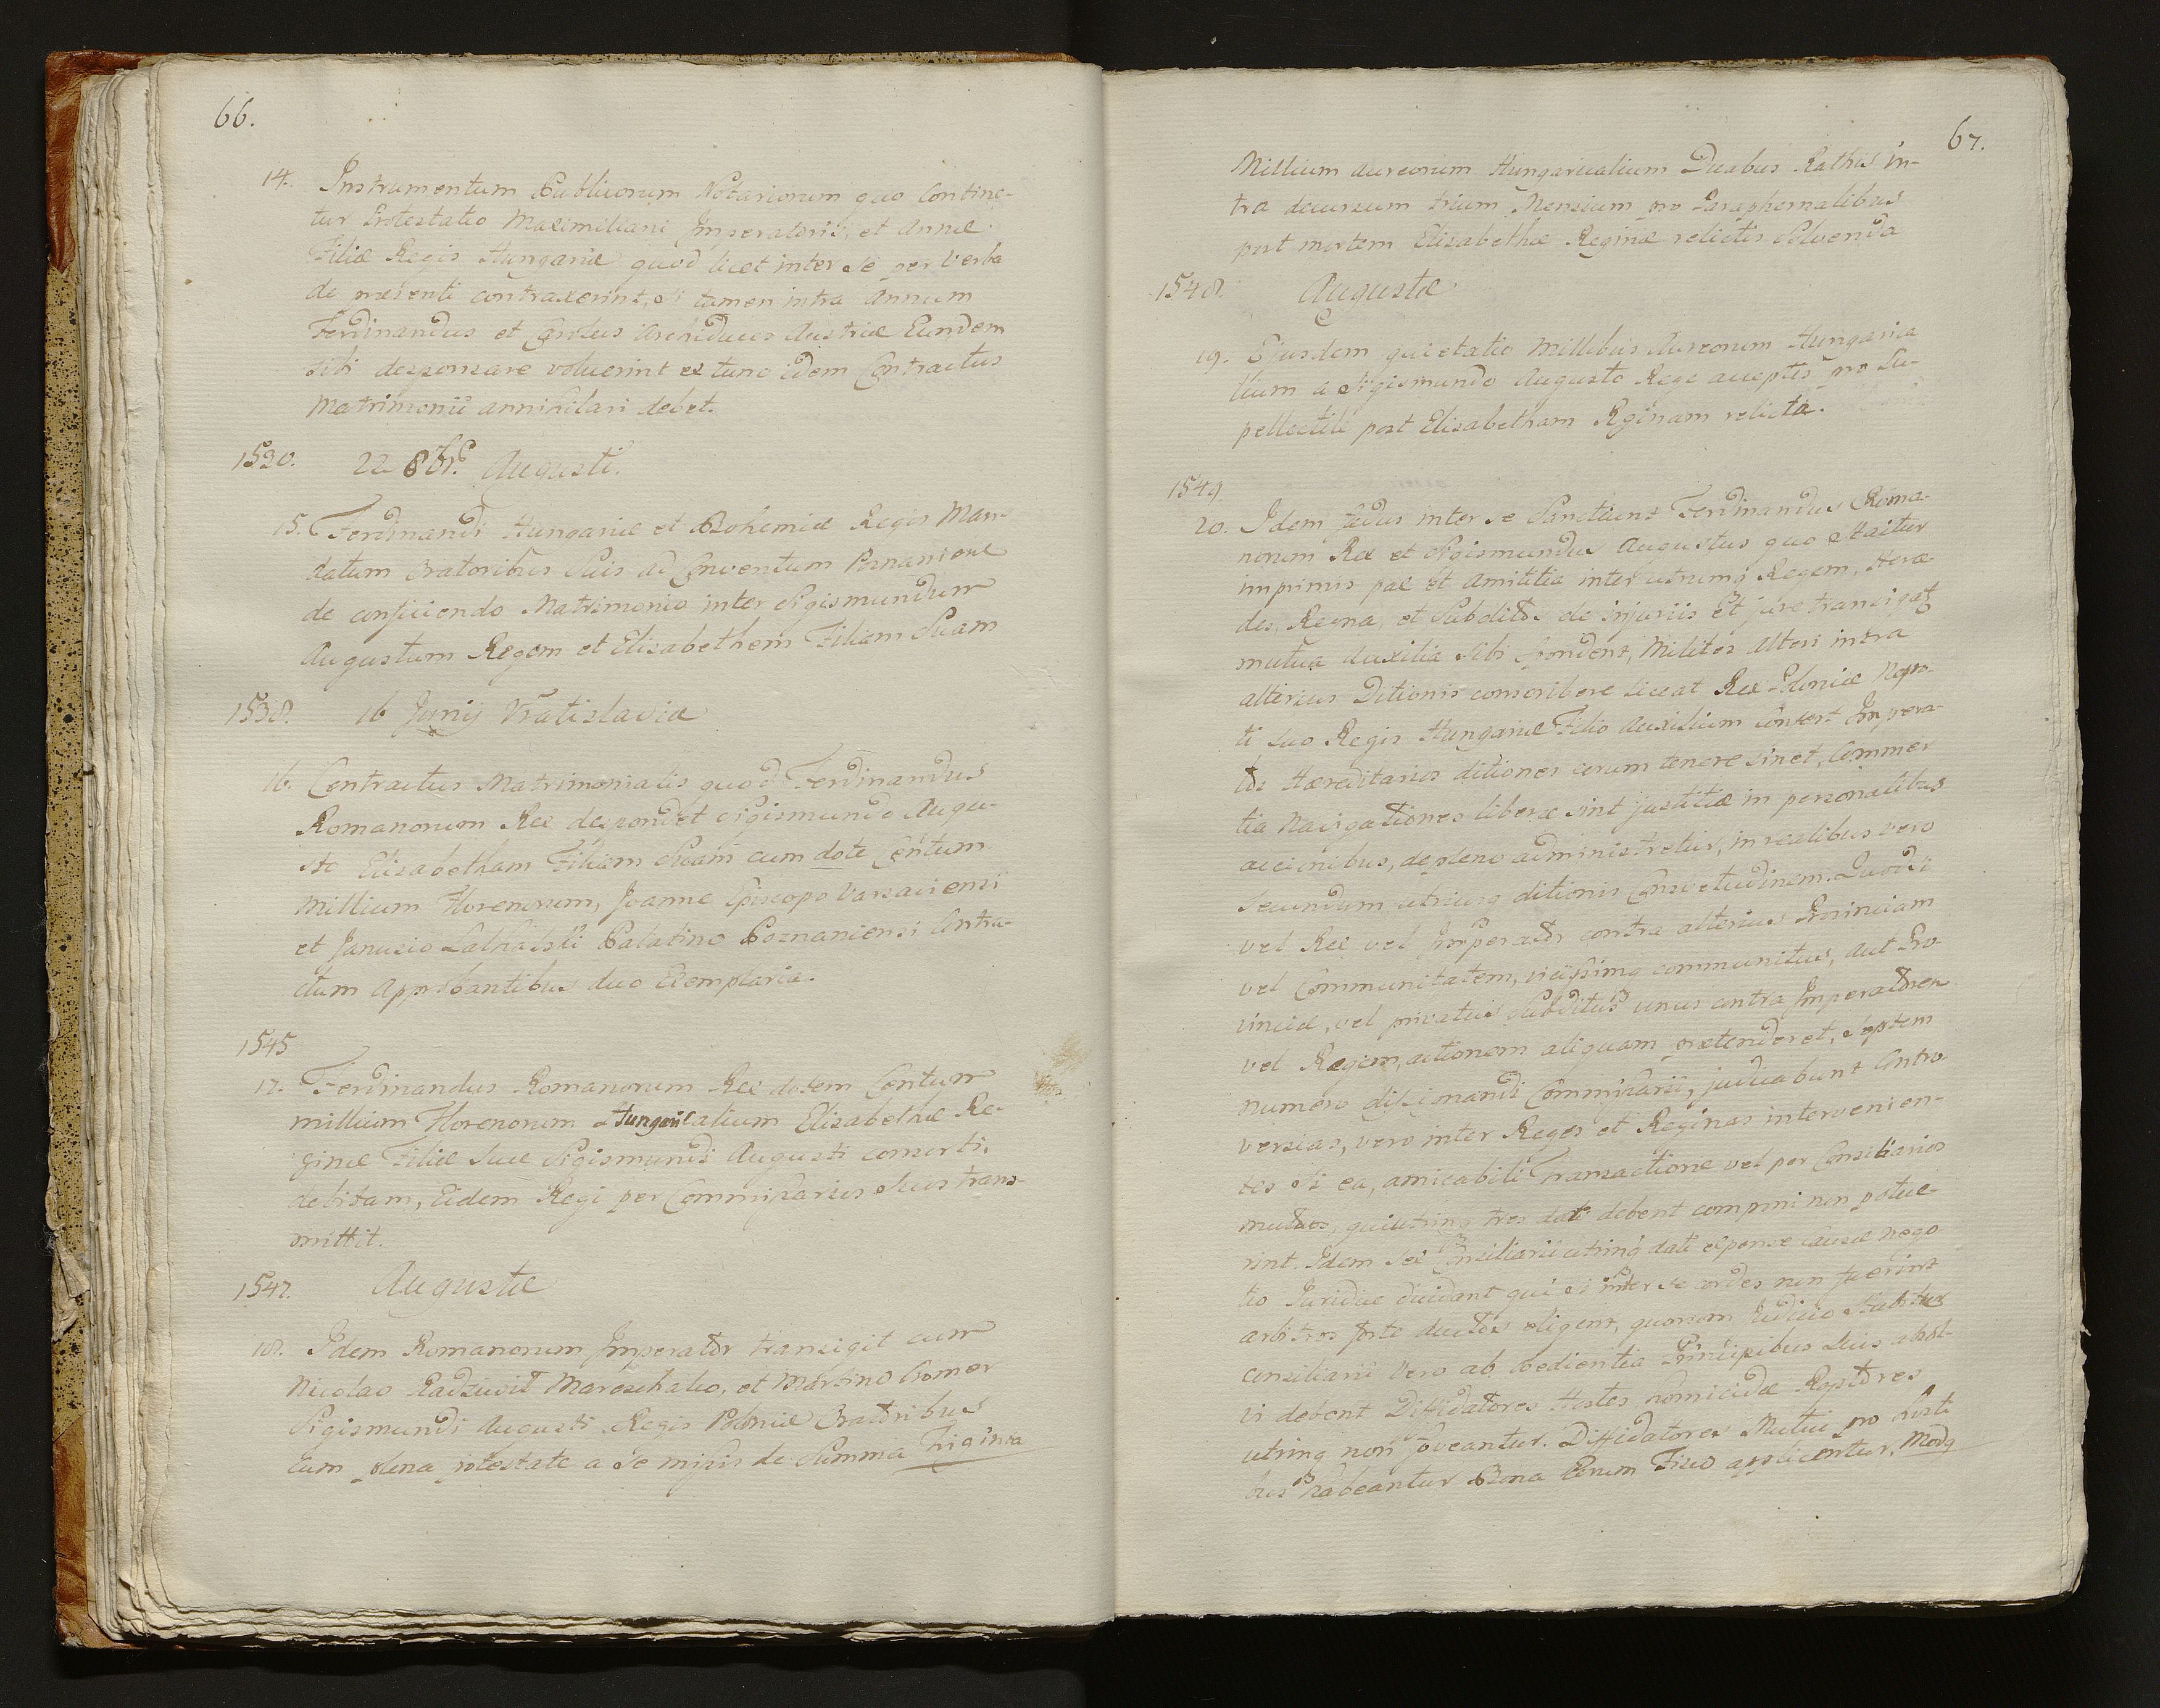 66.
14. Instrumentum Publicorum Notariorum quo Contine-
tur Protestatio Maximiliani Imperatoris, et Annæ
Filiæ Regis Hungariæ quod licet inter Se per Verba
de præsenti contraxerint, Si tamen intra Annum
Ferdinandus et Carolus Archiduces Austriæ Eundem
sibi desponsare voluerint ex tunc idem Contractus
Matrimonii annihilari debet.
1530. 22 8br. Augusti.
15. Ferdinandi Hungariæ et Bohemiæ Regis Man-
datum Oratoribus Suis ad Conventum Poznaniens
de conficiendo Matrimonio inter Sigismundum
Augustum Regem et Elisabetham Filiam Suam
1538. 16 Junij Vratislaviæ
16. Contractus Matrimonialis quod Ferdinandus
Romanorum Rex despondet Sigismundo Augu-
sto Elisabetham Filiam Suam cum dote Centum
Millium Florenorum, Joanne Episcopo Varsaviensi
et Janusio Latalski Palatino Poznaniensi Contra-
ctum Approbantibus duo Exemplaria.
1545
17. Ferdinandus Romanorum Rex dotem Centum
millium Florenorum Hungaricalium Elisabethæ Re-
ginæ Filiæ Suæ Sigismundi Augusti consorti,
debitam, Eidem Regi per Commissarios Suos trans-
mittit.
1547. Augustæ
18. Idem Romanorum Imperator transigit cum
Nicolao Radziwil Mareschalco, et Martino Cromer
Sigismundi Augusti Regis Poloniæ Oratoribus
Cum plena potestate a Se missis de Summa Triginta
67.
Millium Aureorum Hungaricalium Duabus Rathis in-
tra decursum trium Mensium pro Paraphernalibus
post mortem Elisabethæ Reginæ relictis Solvenda
1548. Augustæ
19. Ejusdem quietatio Millibus Aureorum Hungarica
lium a Sigismundo Augusto Rege acceptis pro Su-
pellectili post Elisabetham Reginam relicta.
1549
20. Idem fædus inter se Sanctiunt Ferdinandus Roma-
norum Rex et Sigismundus Augustus quo Statur
imprimis pax et Amititia inter utrumq Regem, Heræ-
des, Regna, et Subditos de injuriis et jure transigat
mutua Auxilia Sibi Spondent, Milites Alteri intra
alterius Ditionis conscribere liceat Rex Poloniæ Nepo-
ti Suo Regis Hungariæ Filio Auxilium Confert Impera-
tor Hæreditarios ditiones eorum tenere sinet, Commer
tia Navigationes liberæ sint justitiæ in personalibus
accionibus, de pleno administretur, in realibus vero
Secundum utriusq ditionis Consvetudinem. Quodsi
vel Rex vel Imperator contra alterius Provinciam
vel Communitatem, vicissimq communitus, Aut Pro-
vinciæ, vel privatus Subditus unus contra Imperatorem
vel Regem, actionem aliquam prætenderet, Septem
numero Commissarii, judicabunt Contro-
versias, vero inter Reges et Reginas intervenien-
tes Si ea, amicabili Transactione vel per Consiliarios
mutuos, qui utrinq tres dati debent componi non potue-
rint. Idem Sex Consiliarii utrinq dati expense causæ nego
tio Juridice decidant qui si inter se cordes non fuerint
arbitros forte ductos eligent, quorum Judicio Stabitur
Consiliarii Vero ab Obedientia Principibus Suis absol-
vi debent Diffidatores Hostes homicidæ Raptores
utrinq non foveantur. Diffidatores Mutui pro hosti
bus habeantur Bona Eorum Fisco applicentur. Modg